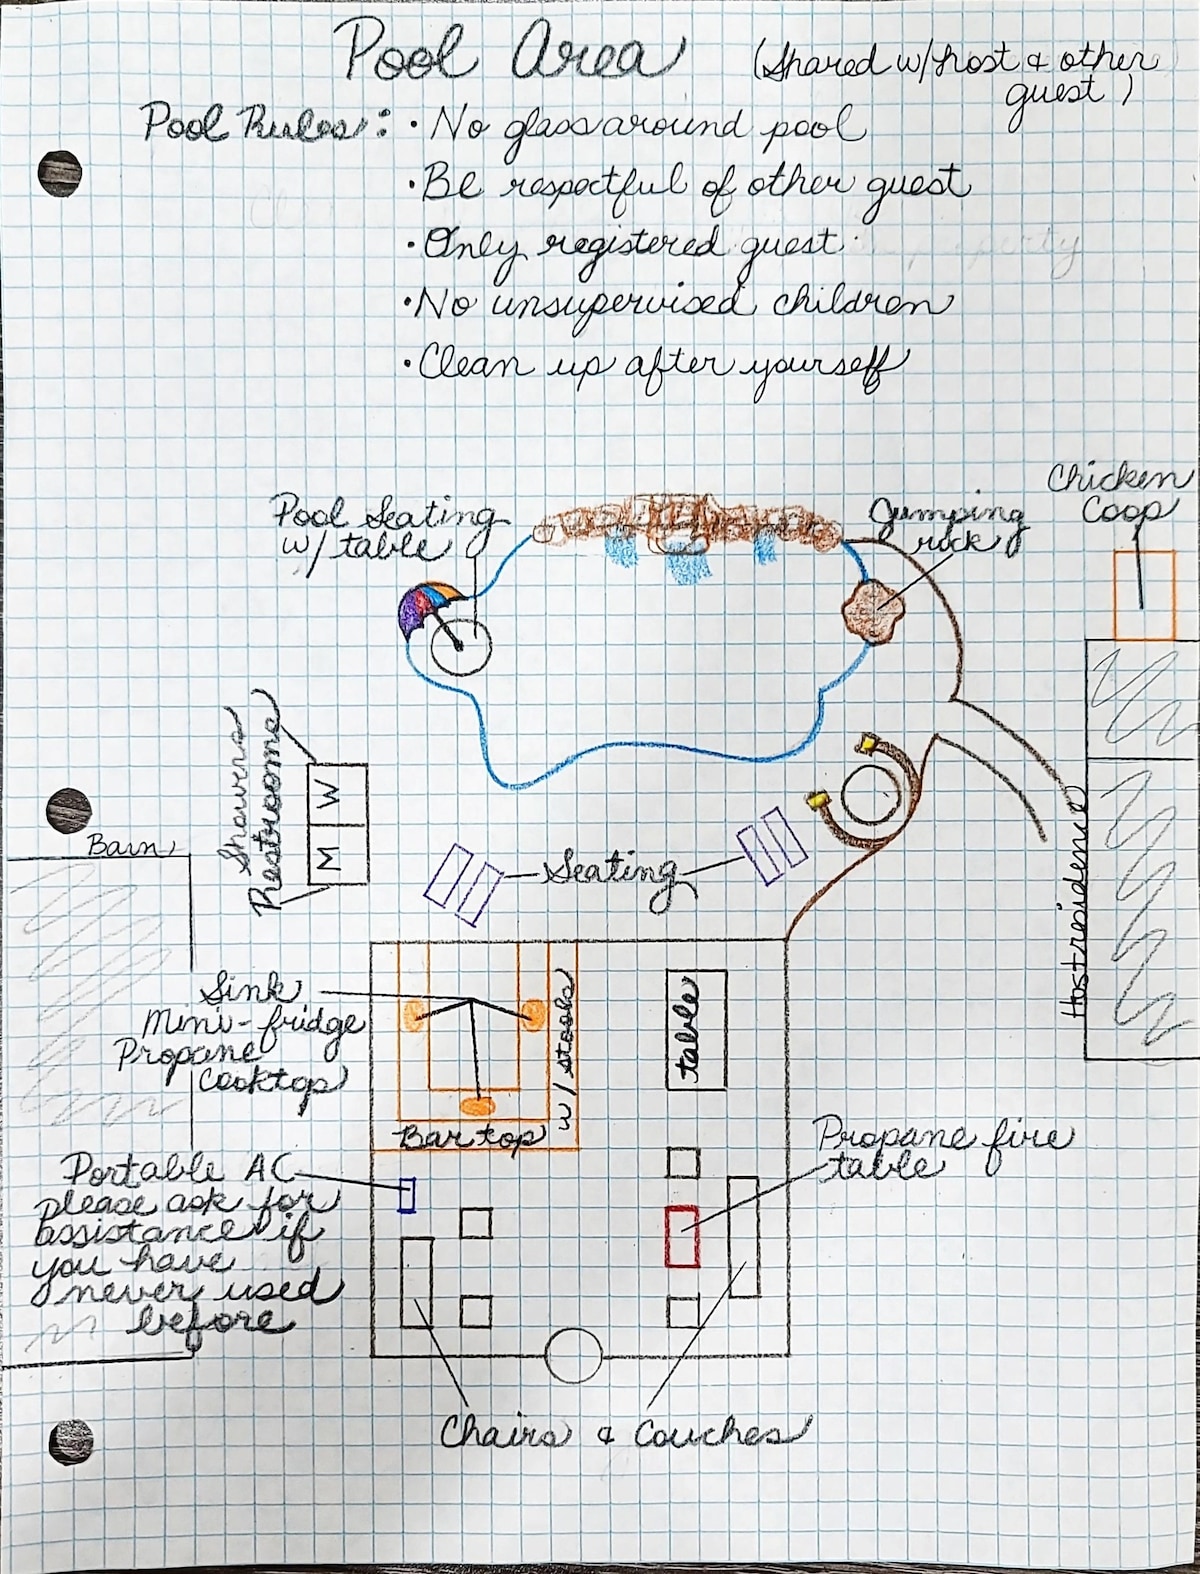 Pool Area
(Shared w/host & other
guest)
Pool Rules:
• No glass around pool
• Be respectful of other guest
• Only registered guest
property
• No unsupervised children
• Clean up after yourself
Chicken
Coop
Pool Seating
w/ table
Jumping
rock
Showers
Restrooms
W
M
Barn
Seating
Host residence
Sink
Mini-fridge
Propane
Cooktop
w/ stools
table
Bar top
Propane fire
table
Portable AC
please ask for
assistance if
you have
never used
before
Chairs & Couches